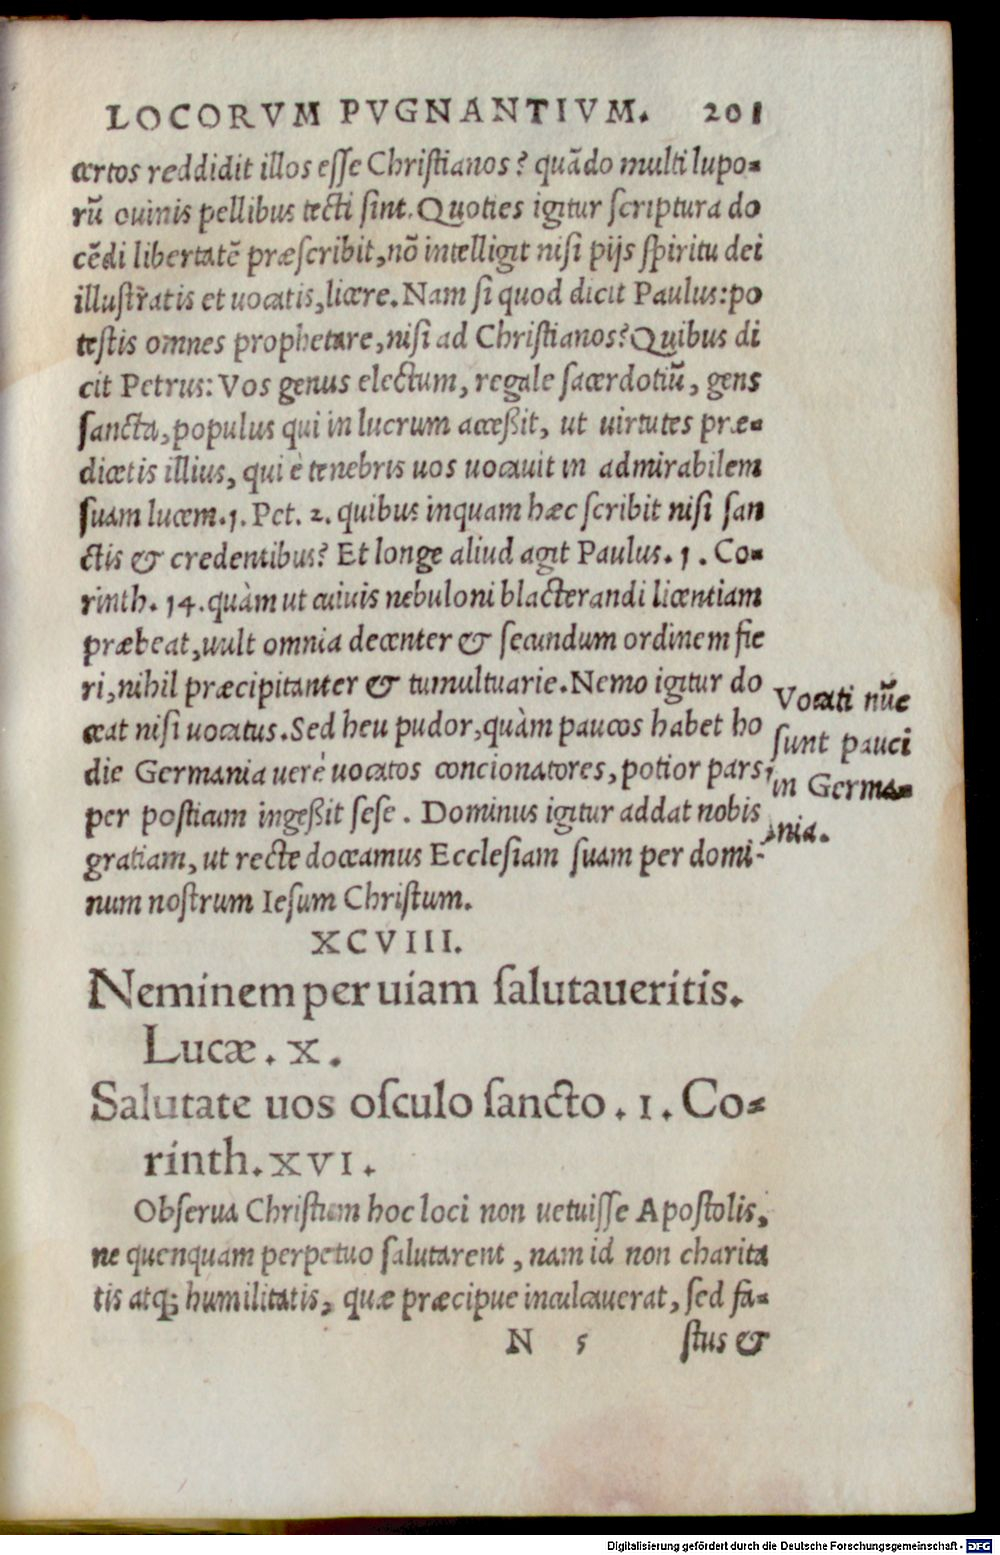 LOCORVM PVGNANTIVM. 201
certos reddidit illos esse Christianos? quãdo multi lupo-
rũ ouinis pellibus tecti sint. Quoties igitur scriptura do
cẽdi libertatẽ præscribit, nõ intelligit nisi pijs spiritu dei
illustratis et uocatis, licere. Nam si quod dicit Paulus: po
testis omnes prophetare, nisi ad Christianos? Quibus di
cit Petrus: Vos genus electum, regale sacerdotiũ, gens
sancta, populus qui in lucrum acceßit, ut uirtutes præ-
dicetis illius, qui è tenebris uos uocauit in admirabilem
suam lucem. 1. Pet. 2. quibus inquam hæc scribit nisi san
ctis & credentibus? Et longe aliud agit Paulus. 1. Co-
rinth. 14. quàm ut cuiuis nebuloni blacterandi licentiam
præbeat, uult omnia decenter & secundum ordinem fie
ri, nihil præcipitanter & tumultuarie. Nemo igitur do
ceat nisi uocatus. Sed heu pudor, quàm paucos habet ho
die Germania uerè uocatos concionatores, potior pars
per posticum ingeßit sese. Dominus igitur addat nobis
gratiam, ut recte doceamus Ecclesiam suam per domi-
num nostrum Iesum Christum.
Vocati nũc
sunt pauci
in Germa-
nia.
XCVIII.
Neminem per uiam salutaueritis.
Lucæ. X.
Salutate uos osculo sancto. 1. Co-
rinth. XVI.
Obserua Christum hoc loci non uetuisse Apostolis,
ne quenquam perpetuo salutarent, nam id non charita
tis atq; humilitatis, quæ præcipue inculcauerat, sed fa-
N 5 stus &
Digitalisierung gefördert durch die Deutsche Forschungsgemeinschaft - DFG